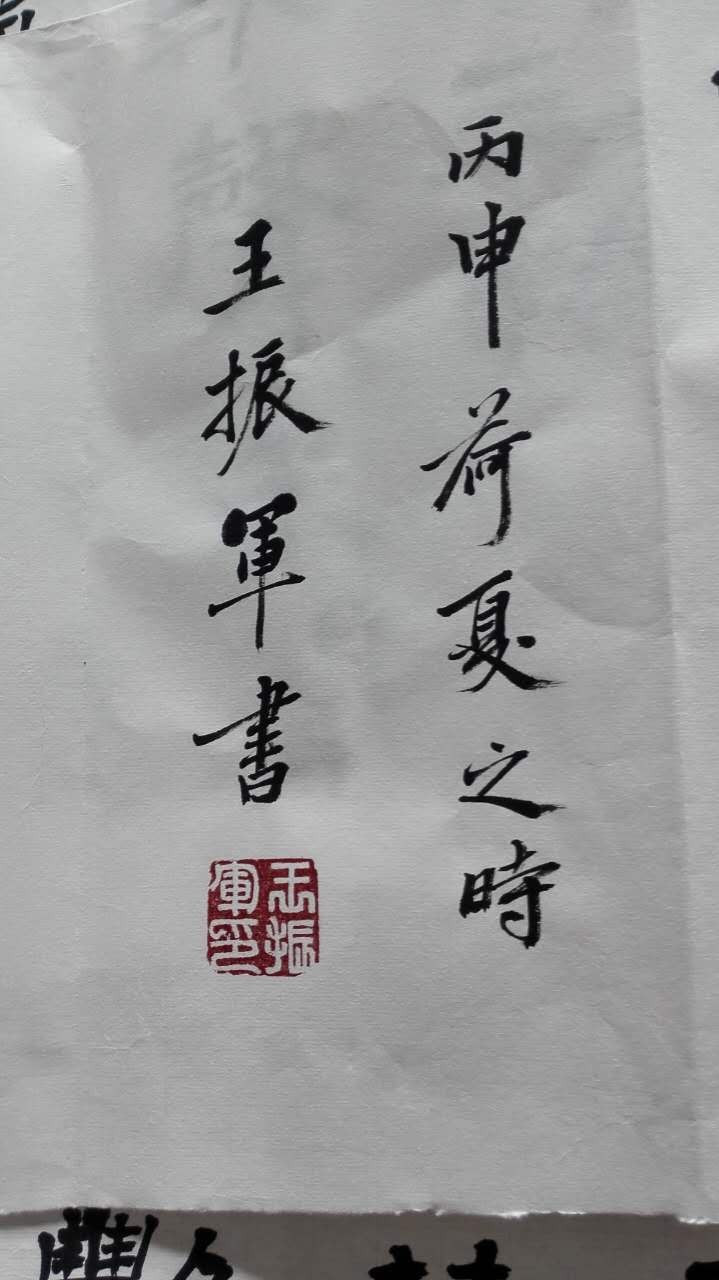 丙申荷夏之時
王振軍書
王振
軍印